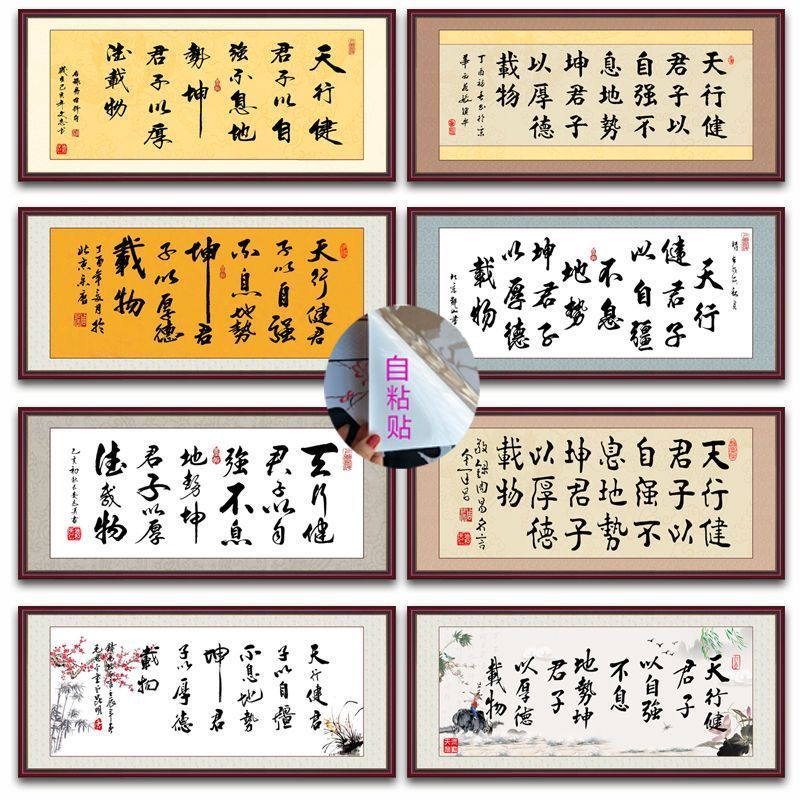 天行健
君子以自
強不息地
勢坤
君子以厚
德載物
天行健
君子以
自强不
息地勢
坤君子
以厚德
載物
天行健君
子以自強
不息地勢
坤君
子以厚德
載物
天行
健君子
以自疆
不息
地勢
坤君子
以厚德
載物
自粘贴
天行健
君子以自
強不息
地勢坤
君子以厚
德載物
天行健
君子以
自强不
息地勢
坤君子
以厚德
載物
天行健君
子以自疆
不息地勢
坤君
子以厚德
載物
天行健
君子
以自強
不息
地勢坤
君子
以厚德
載物